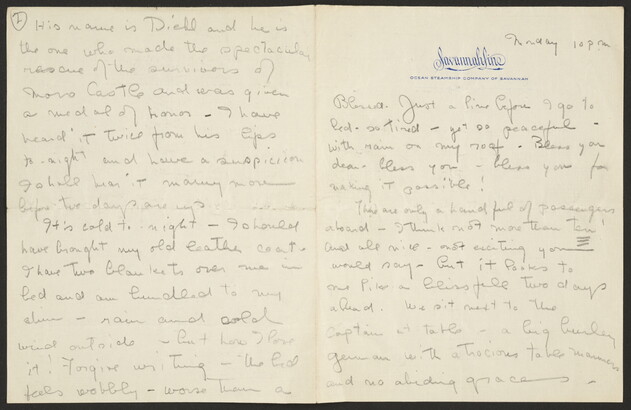 Monday 10 pm
Savannah Line
OCEAN STEAMSHIP COMPANY OF SAVANNAH
Just a line before I go to
bed - so tired - yet so peaceful -
with rain on my roof - Bless you
dear - bless you - bless you for
making it possible!
There are only a handful of passengers
aboard - I think not more than ten
and all nice - not exciting you
would say - but it looks to
me like a blissful two days
ahead. We sit next to the
Captain at table - a big burly
german with atrocious table manners
and no abiding graces -
I
His name is Diehl and he is
the one who made the spectacular
rescue of the survivors of
Morro Castle and was given
a medal of honor - I have
heard it twice from his lips
to-night and have a suspicion
I shall hear it many more
before two days are up
It is cold to-night - I should
have brought my old leather coat -
I have two blankets over me in
bed and am bundled to my
chin - rain and cold
wind outside - but how I love
it! Forgive writing - the bed
feels wobbly - worse than a